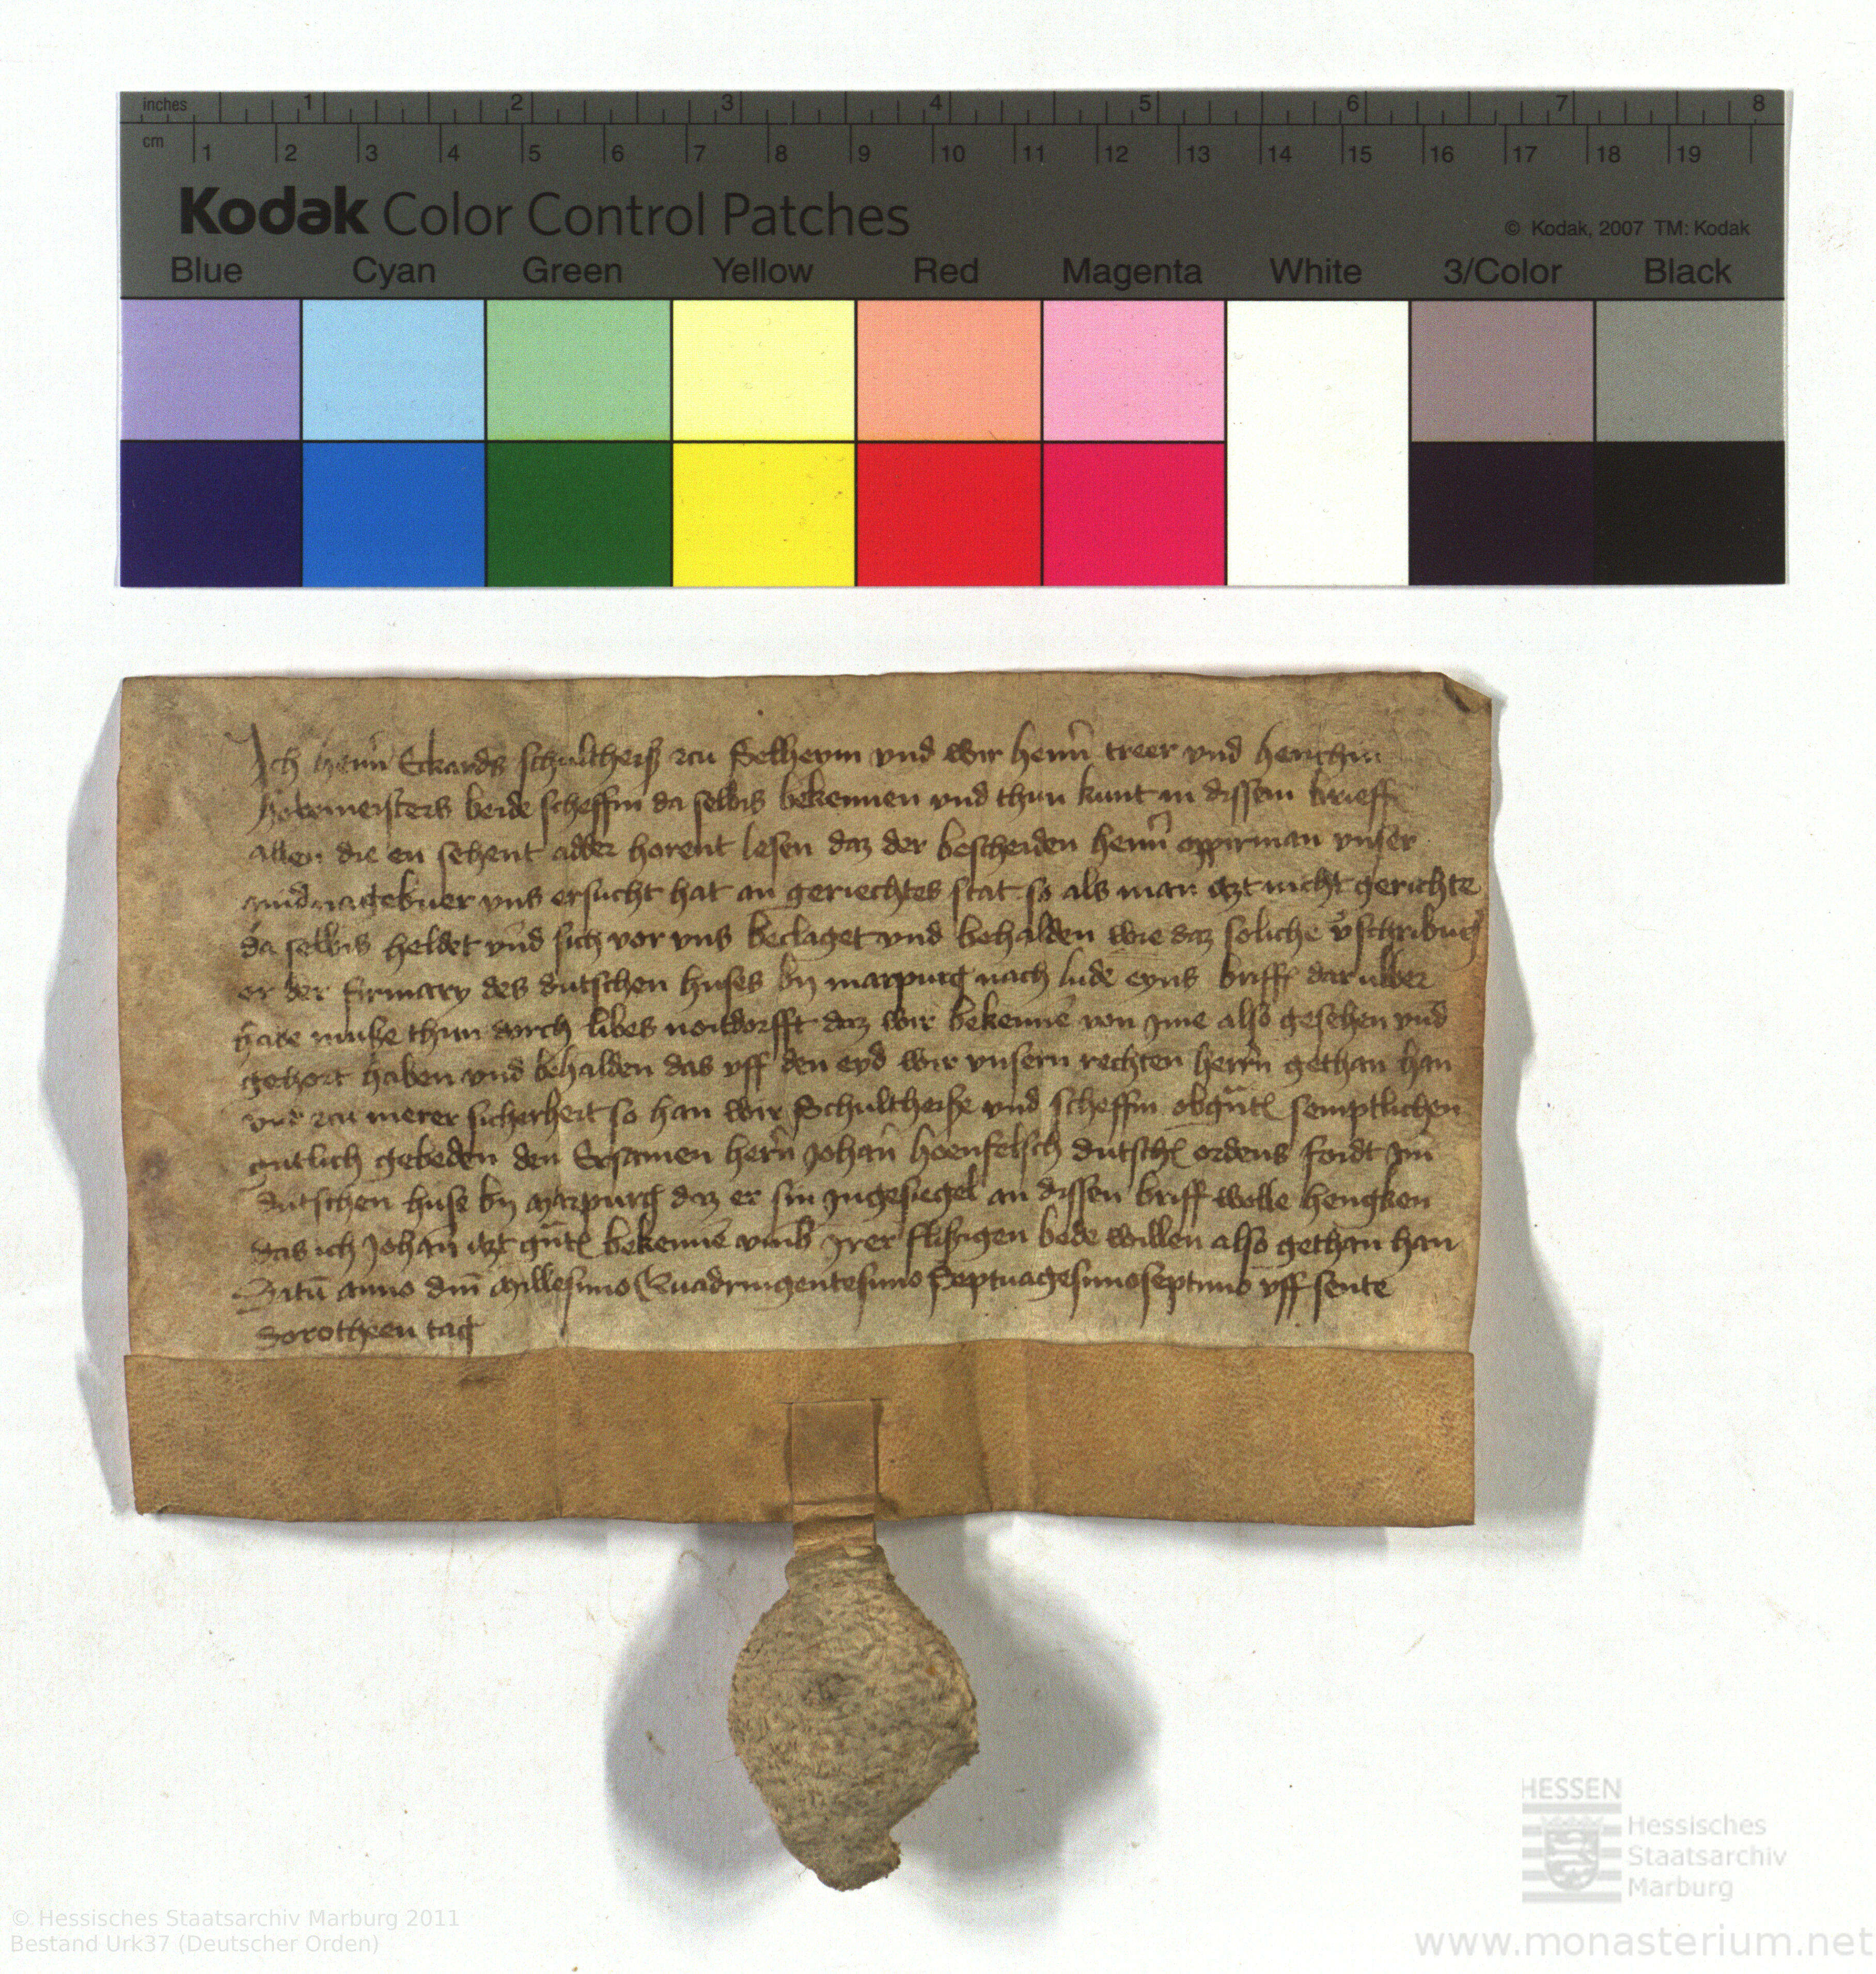 inches 1 2 3 4 5 6 7 8
cm 1 2 3 4 5 6 7 8 9 10 11 12 13 14 15 16 17 18 19
Kodak Color Control Patches
© Kodak, 2007 TM: Kodak
Blue Cyan Green Yellow Red Magenta White 3/Color Black
Ich henn̄ Eckards schultheiß zcu Selheym vnd wir henn̄ treer vnd henchin
beide scheffin da selbis bekennen vnd thun kunt in dissem brieff
allen die en sehent adder horent lesen daz der bescheiden henn̄ oppirman vnser
vns ersucht hat an geriechtes stat so als man itzt nicht gerichte
da selbis heldet vnd sich vor vns beclaget vnd behalden wie daz soliche v̄schribūg
er der firmary des dutschen huses by marpurg nach lude eyns briffs dar ubber
habe muße thun dorch libes noitdorfft daz wir bekenne von yme also gesehen vnd
gehort haben vnd behalden das vff den eyd wir vnsern rechten herrn̄ gethan han
vnd zcu merer sicherheit so han wir Schultheiße vnd scheffin obgn̄ts semptlichen
gutlich gebeden den Ersamen hern̄ Johan̄ hoenfelsch dutschs ordens foidt Im
dutschen huse by Marpurg daz er sin Ingesiegel an dissen briff wolle hengken
das ich Johan̄ itzt gn̄ts bekenne vmb Irer flißigen bede willen also gethan han
Datū anno dm̄ Millesimo Quadringentesimo Septuagesimoseptimo vff sente
Dorotheen tag
HESSEN
Hessisches
Staatsarchiv
Marburg
© Hessisches Staatsarchiv Marburg 2011
Bestand Urk37 (Deutscher Orden)
www.monasterium.net